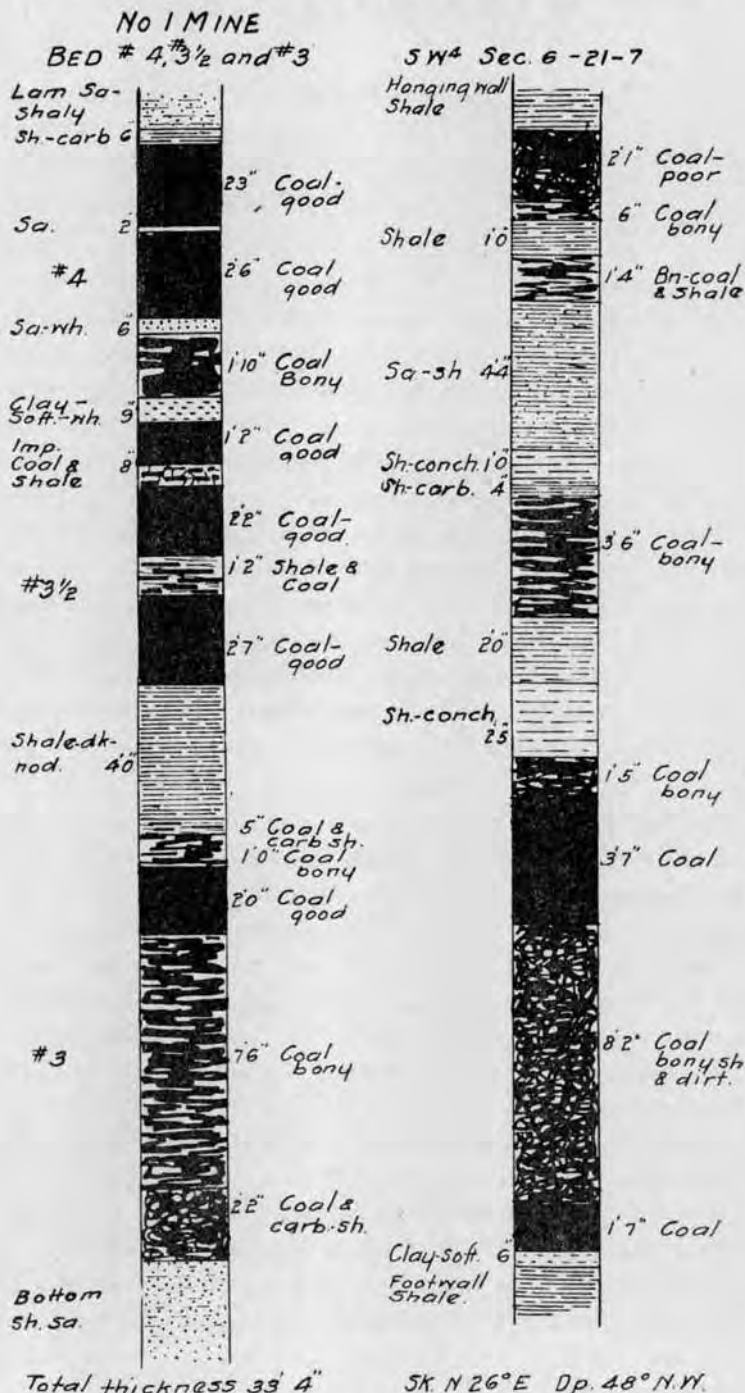 No 1 MINE
BED # 4, #3½ and #3
Lam Sa-
Shaly
Sh.-carb 6"
2'3" Coal-
good
Sa. 2"
#4
2'6" Coal
good
Sa-wh. 6"
1'10" Coal
Bony
Clay-
Soft.-wh. 9"
1'2" Coal
good
Imp.
Coal & 8"
Shale
2'2" Coal-
good.
1'2" Shale &
Coal
#3½
2'7" Coal-
good
Shale-dk-
nod. 4'0"
5" Coal &
carb sh.
1'0" Coal
bony
2'0" Coal
good
#3
7'6" Coal
bony
2'2" Coal &
carb.-sh.
Bottom
Sh. Sa.
Total thickness 33' 4"
SW⁴ Sec. 6 -21-7
Hanging wall
Shale
2'1" Coal-
poor
6" Coal
bony
Shale 1'0"
1'4" Bn-coal
& Shale
Sa-sh 4'4"
Sh.-conch. 1'0"
Sh-carb. 4"
3'6" Coal-
bony
Shale 2'0"
Sh.-conch.
2'5"
1'5" Coal
bony
3'7" Coal
8'2" Coal
bony sh
& dirt.
1'7" Coal
Clay-soft. 6"
Footwall
Shale.
SK. N 26°E Dp. 48° N.W.